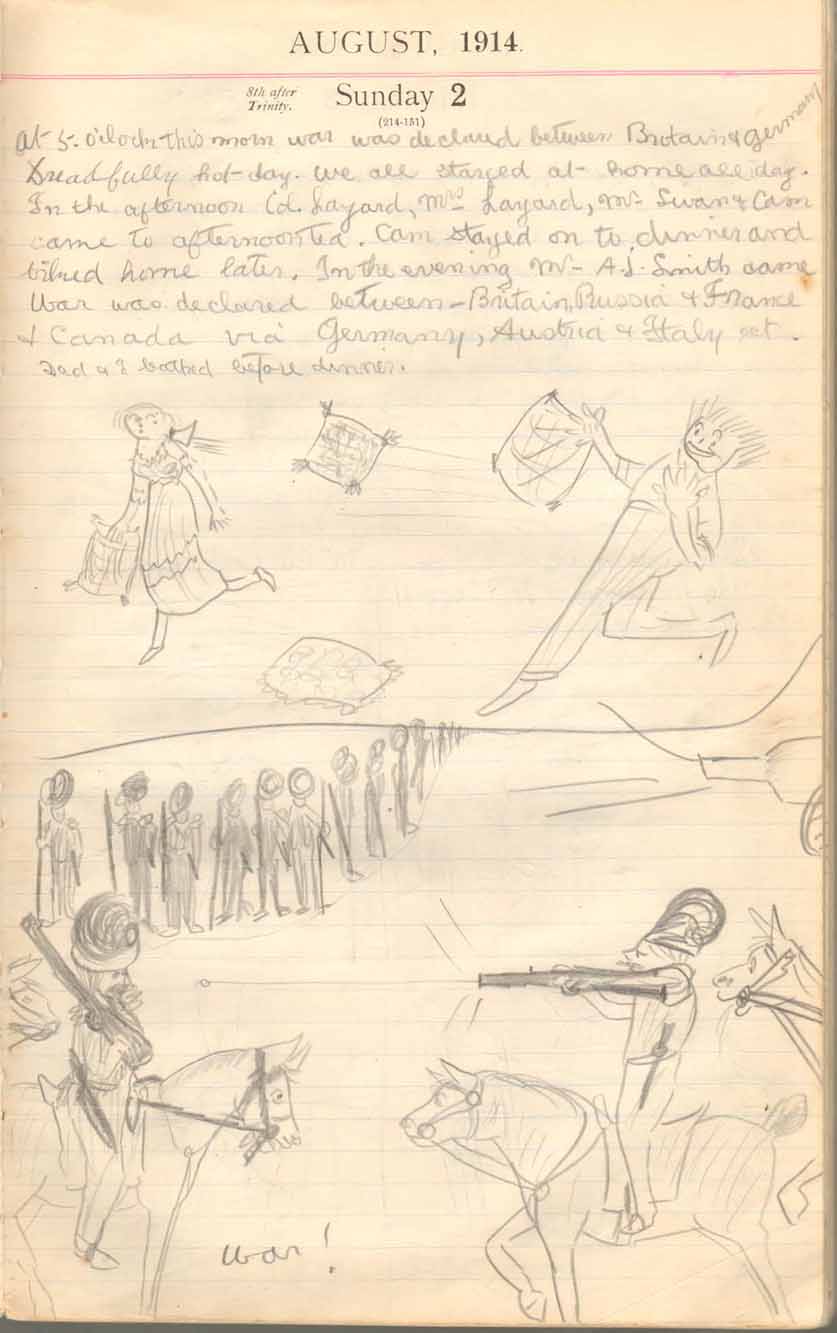 AUGUST, 1914.
8th after
Trinity.
Sunday 2
(214-151)
At 5. o'clock this morn war was declared between Britain & Germany
Dreadfully hot day. We all stayed at home all day.
In the afternoon Col. Layard, Mrs Layard, Mr Swan & Cam
came to afternoon tea. Cam stayed on to dinner and
biked home later. In the evening Mr A.J. Smith came
War was declared between Britain, Russia & France
& Canada via Germany, Austria & Italy
Dad & I bathed before dinner.
War!